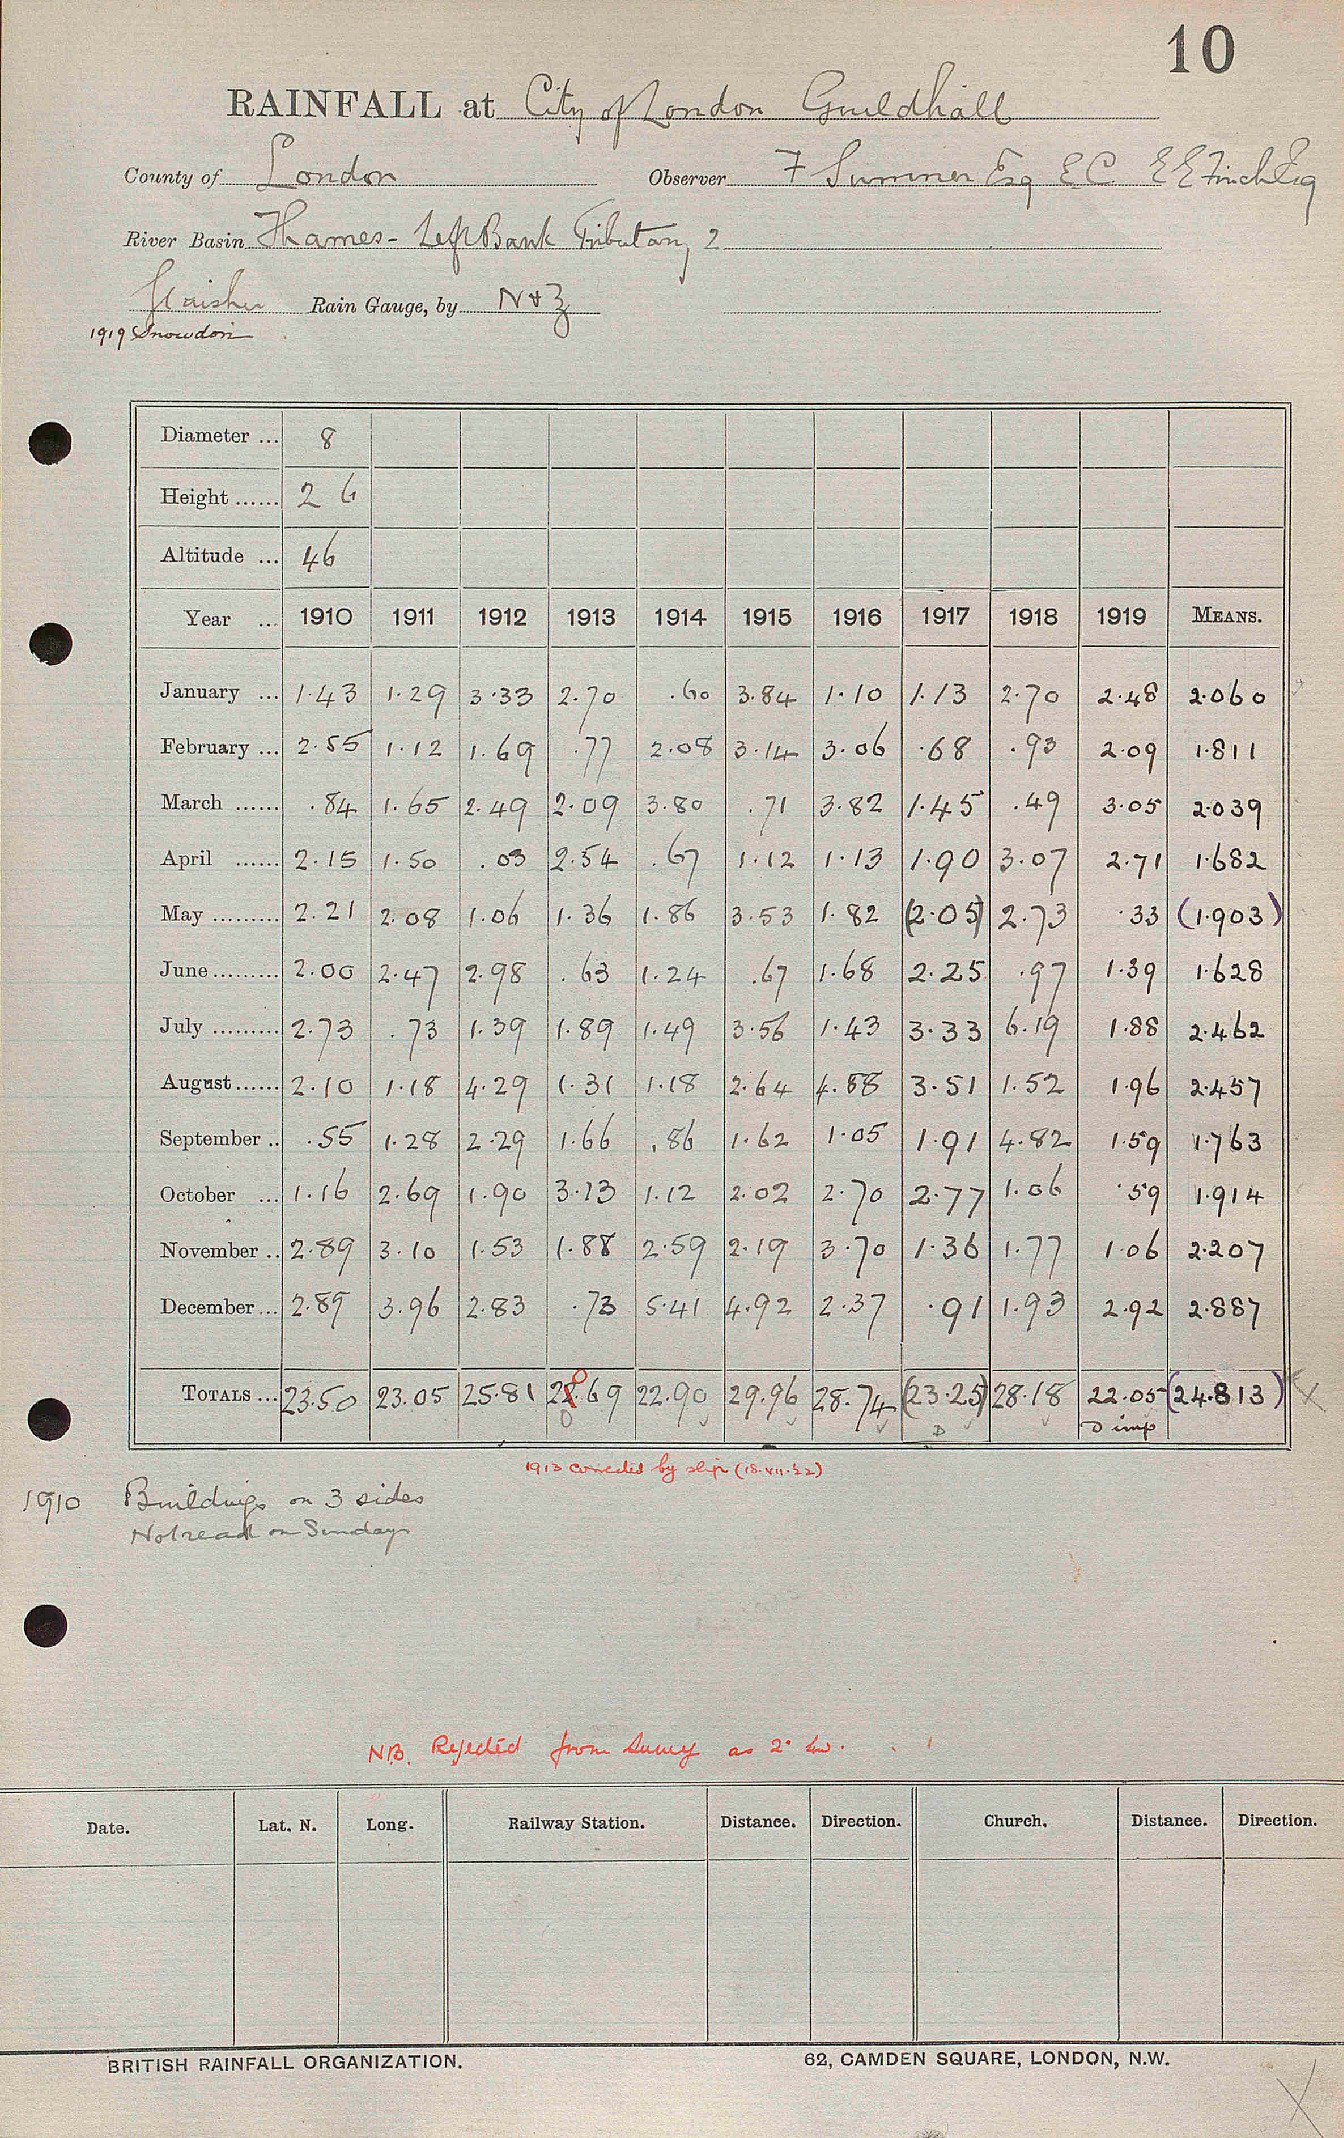 10
RAINFALL at City of London Guildhall
County of London Observer F Summer Esq E C E E Finch Esq
River Basin Thames - Left Bank Tributary 2
Glaisher Rain Gauge, by N & Z
1919 Snowdon
Diameter ... 8
Height ...... 2 6
Altitude ... 46
Year ... 1910 1911 1912 1913 1914 1915 1916 1917 1918 1919 MEANS.
January ... 1.43 1.29 3.33 2.70 .60 3.84 1.10 1.13 2.70 2.48 2.060
February ... 2.55 1.12 1.69 .77 2.08 3.14 3.06 .68 .93 2.09 1.811
March ...... .84 1.65 2.49 2.09 3.80 .71 3.82 1.45 .49 3.05 2.039
April ...... 2.15 1.50 .03 2.54 .67 1.12 1.13 1.90 3.07 2.71 1.682
May ......... 2.21 2.08 1.06 1.36 1.86 3.53 1.82 (2.05) 2.73 .33 (1.903)
June ......... 2.00 2.47 2.98 .63 1.24 .67 1.68 2.25 .97 1.39 1.628
July ......... 2.73 .73 1.39 1.89 1.49 3.56 1.43 3.33 6.19 1.88 2.462
August ...... 2.10 1.18 4.29 1.31 1.18 2.64 4.88 3.51 1.52 1.96 2.457
September .. .55 1.28 2.29 1.66 .86 1.62 1.05 1.91 4.82 1.59 1.763
October ... 1.16 2.69 1.90 3.13 1.12 2.02 2.70 2.77 1.06 .59 1.914
November .. 2.89 3.10 1.53 1.88 2.59 2.19 3.70 1.36 1.77 1.06 2.207
December ... 2.89 3.96 2.83 .73 5.41 4.92 2.37 .91 1.93 2.92 2.887
TOTALS ... 23.50 23.05 25.81 20.69 22.90 29.96 28.74 (23.25) 28.18 22.05 (24.813)
D imp
1913 corrected by slip (18.VII.22)
1910 Buildings on 3 sides
Not read on Sundays
N.B. Rejected from Survey as 2" low.
Date. Lat. N. Long. Railway Station. Distance. Direction. Church. Distance. Direction.
BRITISH RAINFALL ORGANIZATION. 62, CAMDEN SQUARE, LONDON, N.W.